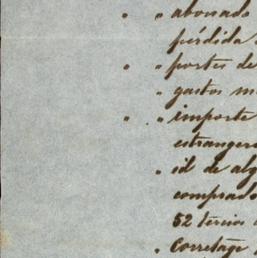 " " abonado
pérdida
" " portes de
" gastos m
" " importe
estrangero
" id de alg
comprado
52 tércios
" Corretage